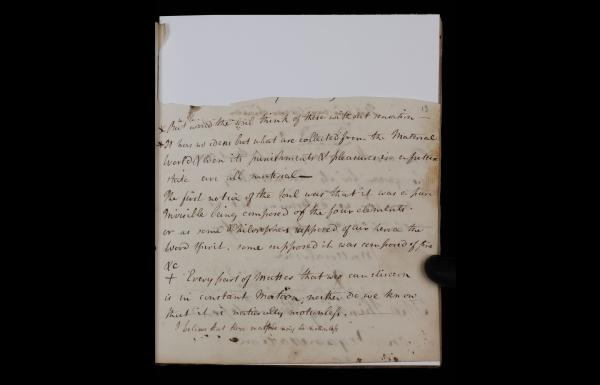 13
x But would the soul think of these without sensation —
x It has no ideas but what are collected from the Material
World & even its punishments & pleasures in a future
state are all material —
The first notion of the Soul was that it was a pure
Invisible being composed of the four elements.
or as some Philosophers supposed of air hence the
Word Spirit. some supposed it was composed of fire
&c
+ Every part of Matter that we can discern
is in constant Motion, neither do we know
that it is naturally motionless.
I believe that there must be motionless